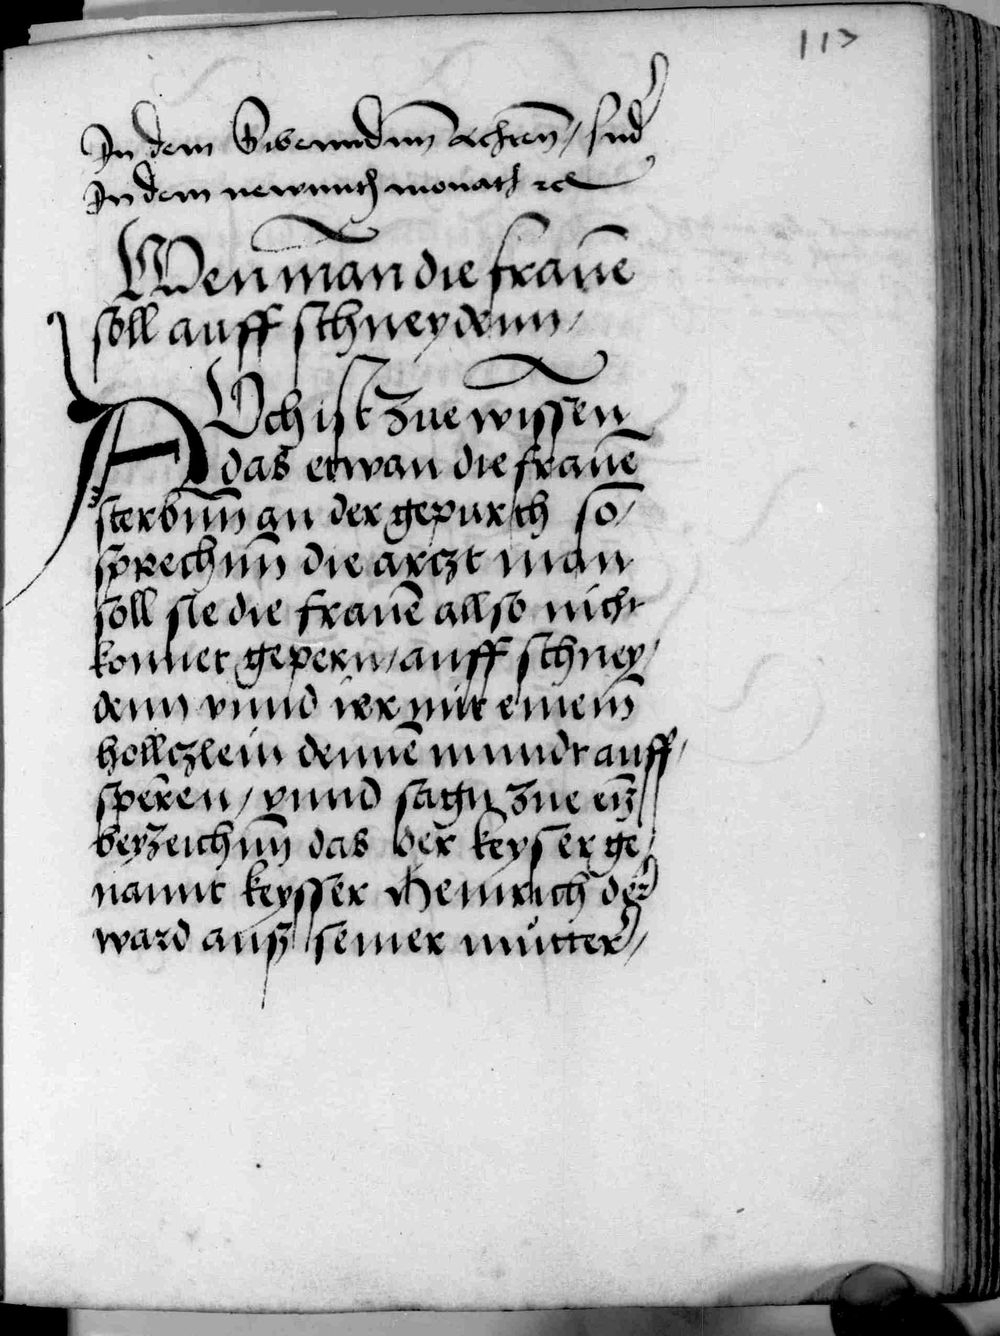 113
In dem Sibenundnn Achtenn / sunder
In dem newnnth monath ꝛc
Wenn man die frauē
soll auff schneydenn /
AUch ist zue wissen
das etwan die frauē
sterbnn an der gepurth so /
sprechnn die arczt man
soll sie die frauē allso nicht
konnet gepern / auff schney /
denn vnnd ier mit einem̄
hollczlein dennē mundt auff /
sperēn / vnnd sagn zue eiz
beyzeichnn das der keyser ge /
nannt keysser Heinrich der
ward ausz seiner můtter /